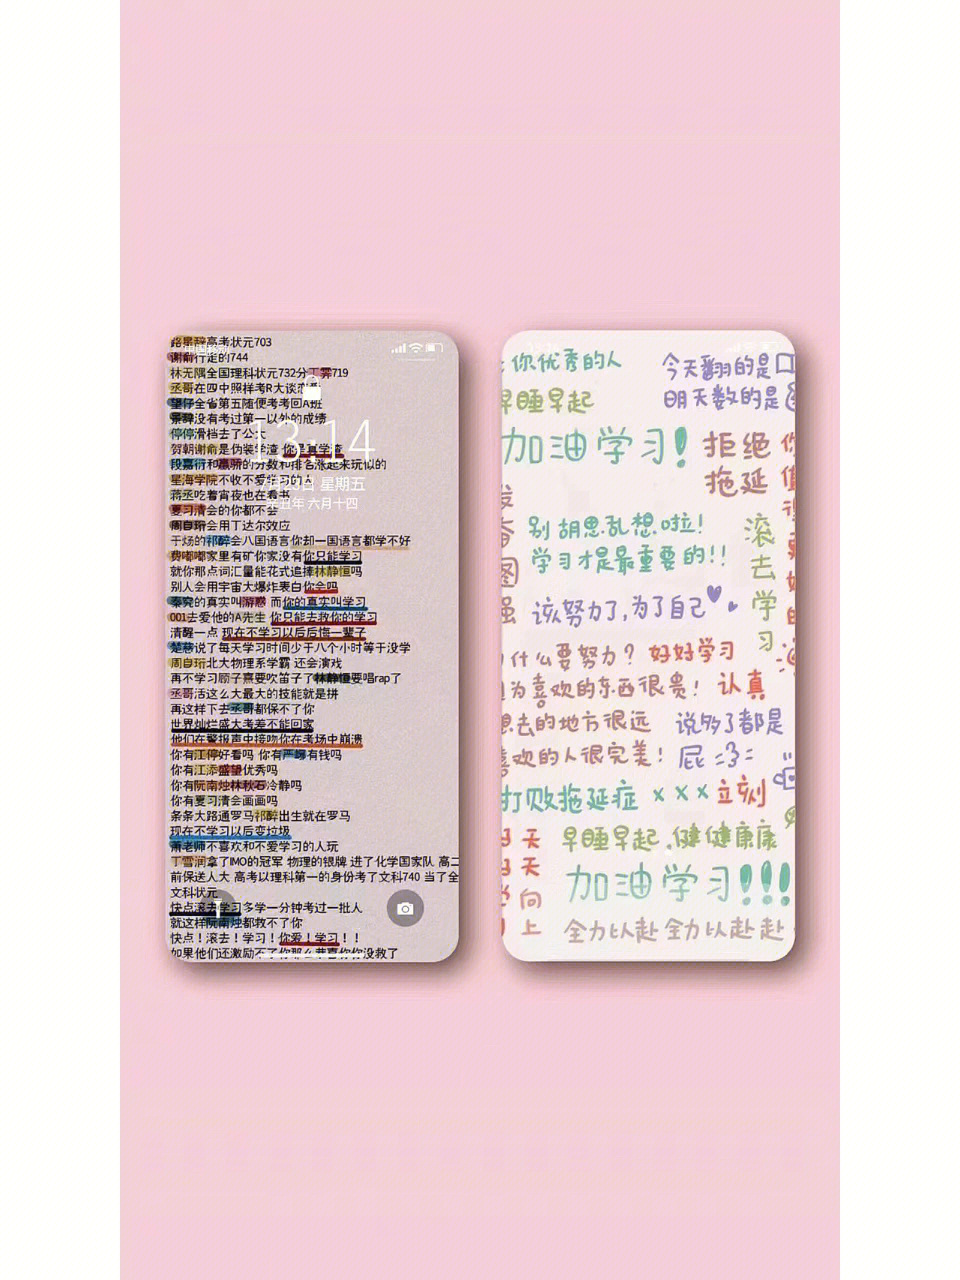 路星辞高考状元703
谢俞行走的744
林无隅全国理科状元732分丁霁719
丞哥在四中照样考R大谈恋爱
望仔全省第五随便考考回A班
景辞没有考过第一以外的成绩
停停滑档去了公大
贺朝谢俞是伪装学渣 你是真学渣
段嘉衍和嬴骄的分数和排名涨起来玩似的
星海学院不收不爱学习的人
蒋丞吃着宵夜也在看书
夏习清会的你都不会
周自珩会用丁达尔效应
于炀的祁醉会八国语言你却一国语言都学不好
费嘟嘟家里有矿你家没有你只能学习
就你那点词汇量能花式追捧林静恒吗
别人会用宇宙大爆炸表白你会吗
秦究的真实叫游惑 而你的真实叫学习
001去爱他的A先生 你只能去救你的学习
清醒一点 现在不学习以后后悔一辈子
楚慈说了每天学习时间少于八个小时等于没学
周自珩北大物理系学霸 还会演戏
再不学习顾子熹要吹笛子了林静恒要唱rap了
丞哥活这么大最大的技能就是拼
再这样下去丞哥都保不了你
世界灿烂盛大考差不能回家
他们在警报声中接吻你在考场中崩溃
你有江停好看吗 你有严峫有钱吗
你有江添盛望优秀吗
你有阮南烛林秋石冷静吗
你有夏习清会画画吗
条条大路通罗马祁醉出生就在罗马
现在不学习以后变垃圾
萧老师不喜欢和不爱学习的人玩
丁雪润拿了IMO的冠军 物理的银牌 进了化学国家队 高二
前保送人大 高考以理科第一的身份考了文科740 当了全
文科状元
快点滚去学习多学一分钟考过一批人
就这样阮南烛都救不了你
快点！滚去！学习！你爱！学习！！
如果他们还激励不了你那么恭喜你你没救了
13:14
日 星期五
辛丑年 六月十四
你优秀的人
今天翻的是
早睡早起
明天数的是
加油学习!
拒绝
拖延
别胡思乱想啦!
学习才是最重要的!!
滚去学习
该努力了,为了自己
什么要努力? 好好学习
为喜欢的东西很贵! 认真
想去的地方很远 说多了都是
喜欢的人很完美! 屁 =3=
打败拖延症 x x x 立刻
天天向上
早睡早起,健健康康
加油学习!!!
全力以赴 全力以赴 赴